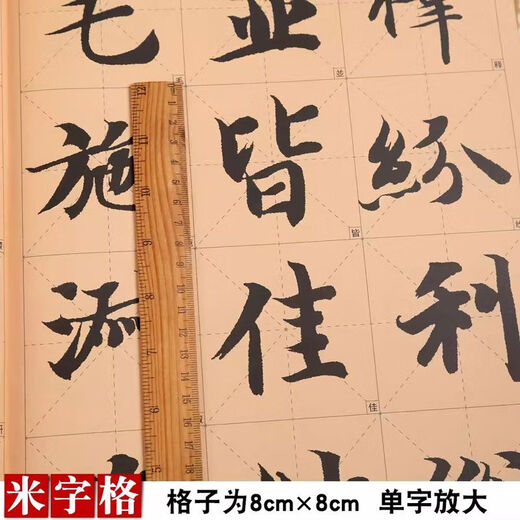 釋紛利
並皆佳
毛施淑
釋
並
皆
佳
毛
米字格
格子为8cm×8cm 单字放大